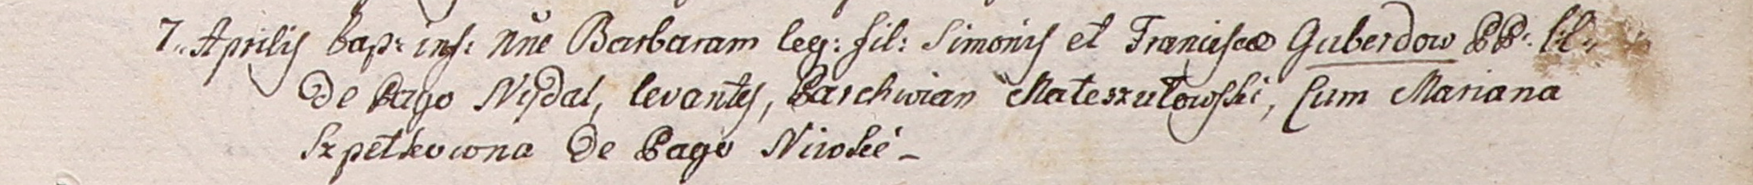 7. Aprilis bap: inf: nñe Barbaram leg: fil: Simonis et Franciscæ Guberdow PP. ll.
de Pago Nisdal, levantes, Parchwian Mateszułowski, Cum Mariana
Szpetkowna de Pago Niwki -